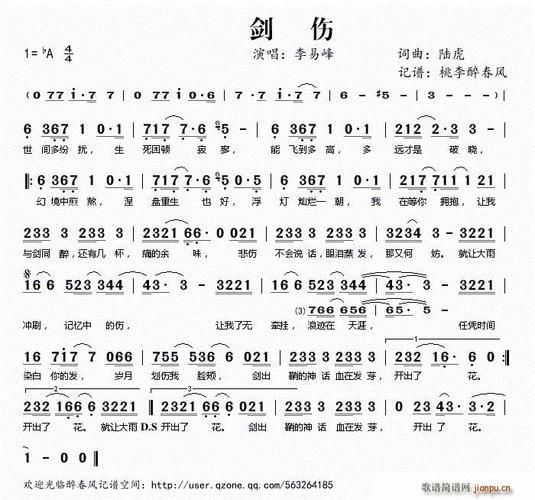 剑 伤
1=♭A 4/4 演唱：李易峰 词曲：陆虎
记谱：桃李醉春风
(0 77 1·7 7 | 0 77 1 0·6 | 7 1·7 1·7 | 6 - #5 - | 3 - - -)
6 367 1 0·1 | 717 7·6 #5 0·5 | 6 367 1 0·1 | 212 2·3 3 - |
世 间多纷 扰， 生 死困顿 寂寥， 能 飞到多 高， 多 远才是 破晓，
6 367 1 0·1 | 717 7·6 #5 0·5 | 6 367 1 0·1 | 217 711 1
幻 境中煎 熬， 涅 盘重生 也好， 浮 灯灿烂一 朝， 我 在等你 拥抱， 让我
233 3 233 3 | 2321 66· 021 | 233 3 233 3 | 2342 3· 3221 |
与剑同 醉，还有几 杯， 痛的余 味， 悲伤 不会说 话，眼泪蒸 发， 那又何 妨。 就让大雨
16 6 523 344 | 43· 3 - 3221 | 16 6 523 344 | 43· 3 - 3221 |
(3) 766 656 | 65· 5 -
冲刷， 记忆中 的伤， 让我了无 牵挂， 浪迹在 天涯， 任凭时间
16 717 7 066 | 755 536 6 021 | 233 3 233 3 | 232 16· 6 0 :|
染白 你的发， 岁月 划伤我 脸颊， 剑出 鞘的神 话 血在发 芽， 开出了 花。
232 166 6 3221 | 232 166 6 021 | 233 3 233 3 | 0 23 43·3·2 |
开出了 花。 就让大雨 D.S 开出了 花。 剑出 鞘的神 话 血在发 芽， 开出了 花。
1 - 0 0 ‖
欢迎光临醉春风记谱空间：http://user.qzone.qq.com/563264185
歌谱简谱网
jianpu.cn